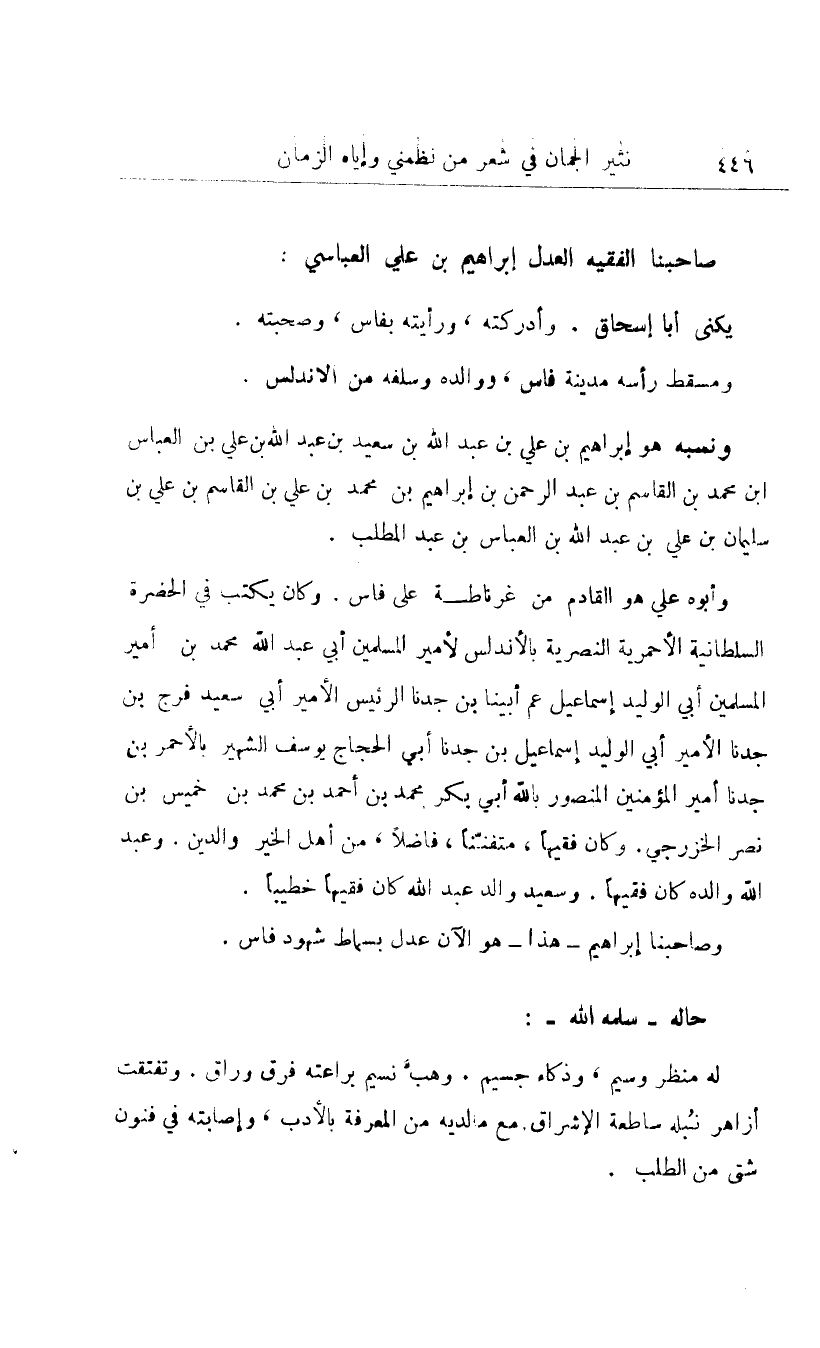 ٤٤٦ نثير الجمان في شعر من نظمني وإياه الزمان
صاحبنا الفقيه العدل إبراهيم بن علي العباسي :
يكنى أبا إسحاق . وأدركته ، ورأيته بفاس ، وصحبته .
ومسقط رأسه مدينة فاس ، ووالده وسلفه من الاندلس .
ونسبه هو إبراهيم بن علي بن عبد الله بن سعيد بن عبد الله بن علي بن العباس
ابن محمد بن القاسم بن عبد الرحمن بن إبراهيم بن محمد بن علي بن القاسم بن علي بن
سليمان بن علي بن عبد الله بن العباس بن عبد المطلب .
وأبوه علي هو االقادم من غرناطـــة على فاس . وكان يكتب في الحضرة
السلطانية الأحمرية النصرية بالأندلس لأمير المسلمين أبي عبد الله محمد بن أمير
المسلمين أبي الوليد إسماعيل عم أبينا بن جدنا الرئيس الأمير أبي سعيد فرج بن
جدنا الأمير أبي الوليد إسماعيل بن جدنا أبي الحجاج يوسف الشهير بالأحمر بن
جدنا أمير المؤمنين المنصور بالله أبي بكر محمد بن أحمد بن محمد بن خميس بن
نصر الخزرجي. وكان فقيهاً ، متفنّناً ، فاضلاً ، من أهل الخير والدين . وعبد
الله والده كان فقيهاً . وسعيد والد عبد الله كان فقيهاً خطيباً .
وصاحبنا إبراهيم ـ هذا ـ هو الآن عدل بسماط شهود فاس .
حاله ـ سلمه الله ـ :
له منظر وسيم ، وذكاء جسيم . وهبّ نسيم براعته فرق وراق . وتفتقت
أزاهر نُبله ساطعة الإشراق. مع مالديه من المعرفة بالأدب ، وإصابته في فنون
شتى من الطلب .